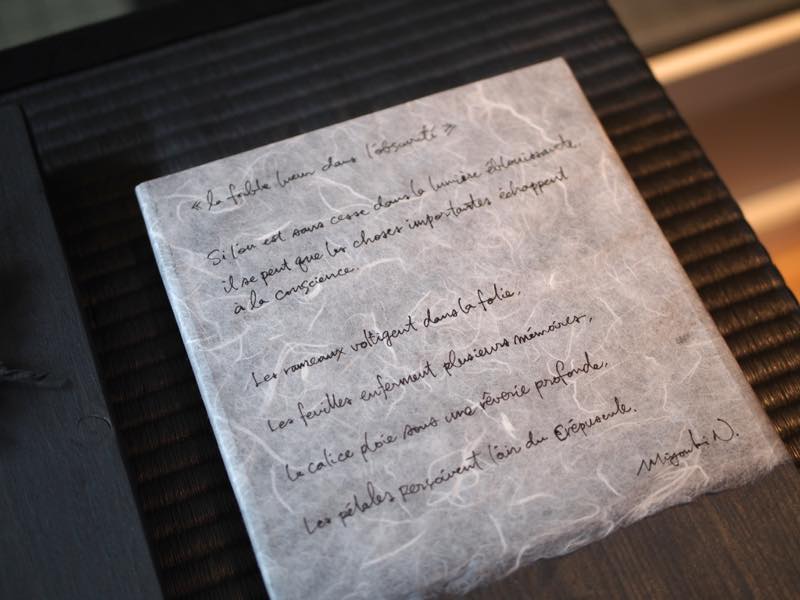 « la faible lueur dans l'obscurité »
Si l'on est sans cesse dans la lumière éblouissante.
il se peut que les choses importantes échappent
à la conscience.
Les rameaux voltigent dans la folie,
Les feuilles enferment plusieurs mémoires,
Le calice ploie sous une rêverie profonde,
Les pétales perçoivent l'air du Crépuscule.
N.